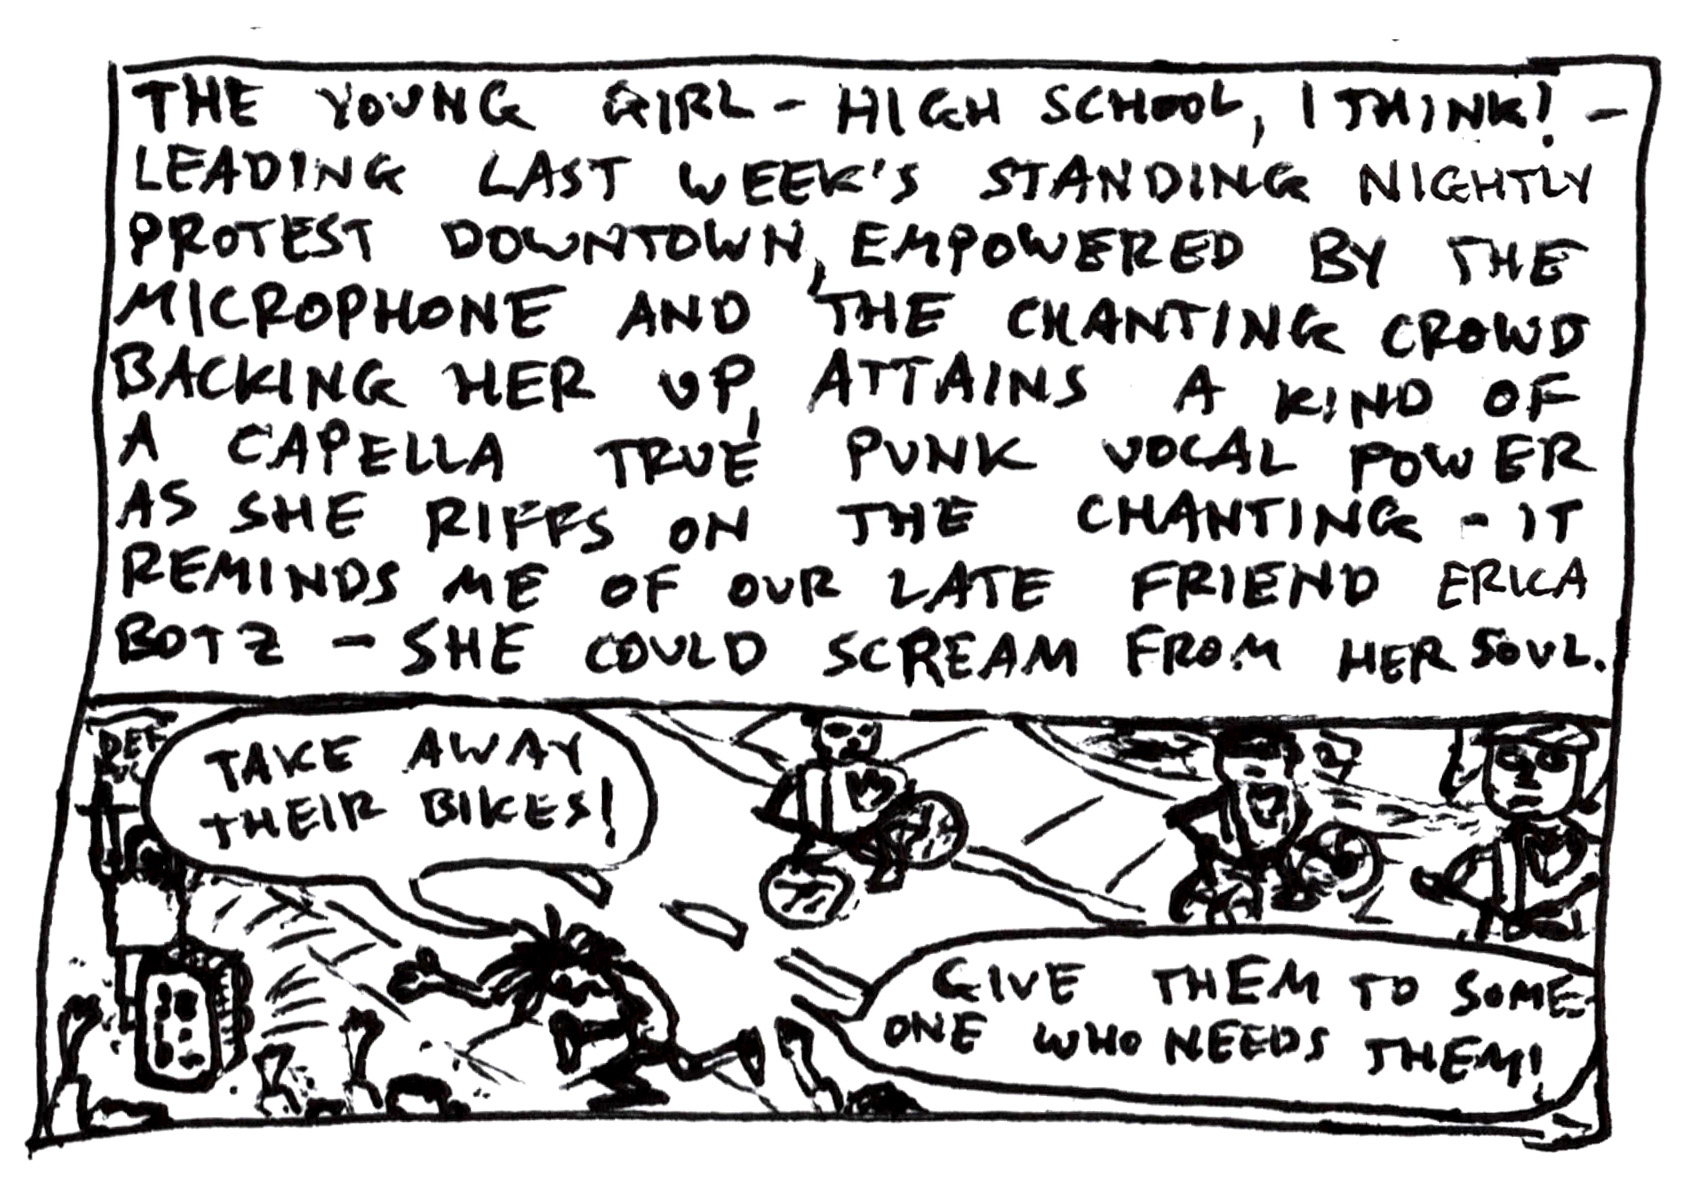 THE YOUNG GIRL - HIGH SCHOOL, I THINK! -
LEADING LAST WEEK'S STANDING NIGHTLY
PROTEST DOWNTOWN, EMPOWERED BY THE
MICROPHONE AND THE CHANTING CROWD
BACKING HER UP, ATTAINS A KIND OF
A CAPELLA TRUE PUNK VOCAL POWER
AS SHE RIFFS ON THE CHANTING - IT
REMINDS ME OF OUR LATE FRIEND ERICA
BOTZ - SHE COULD SCREAM FROM HER SOUL.
TAKE AWAY
THEIR BIKES!
GIVE THEM TO SOME-
ONE WHO NEEDS THEM!